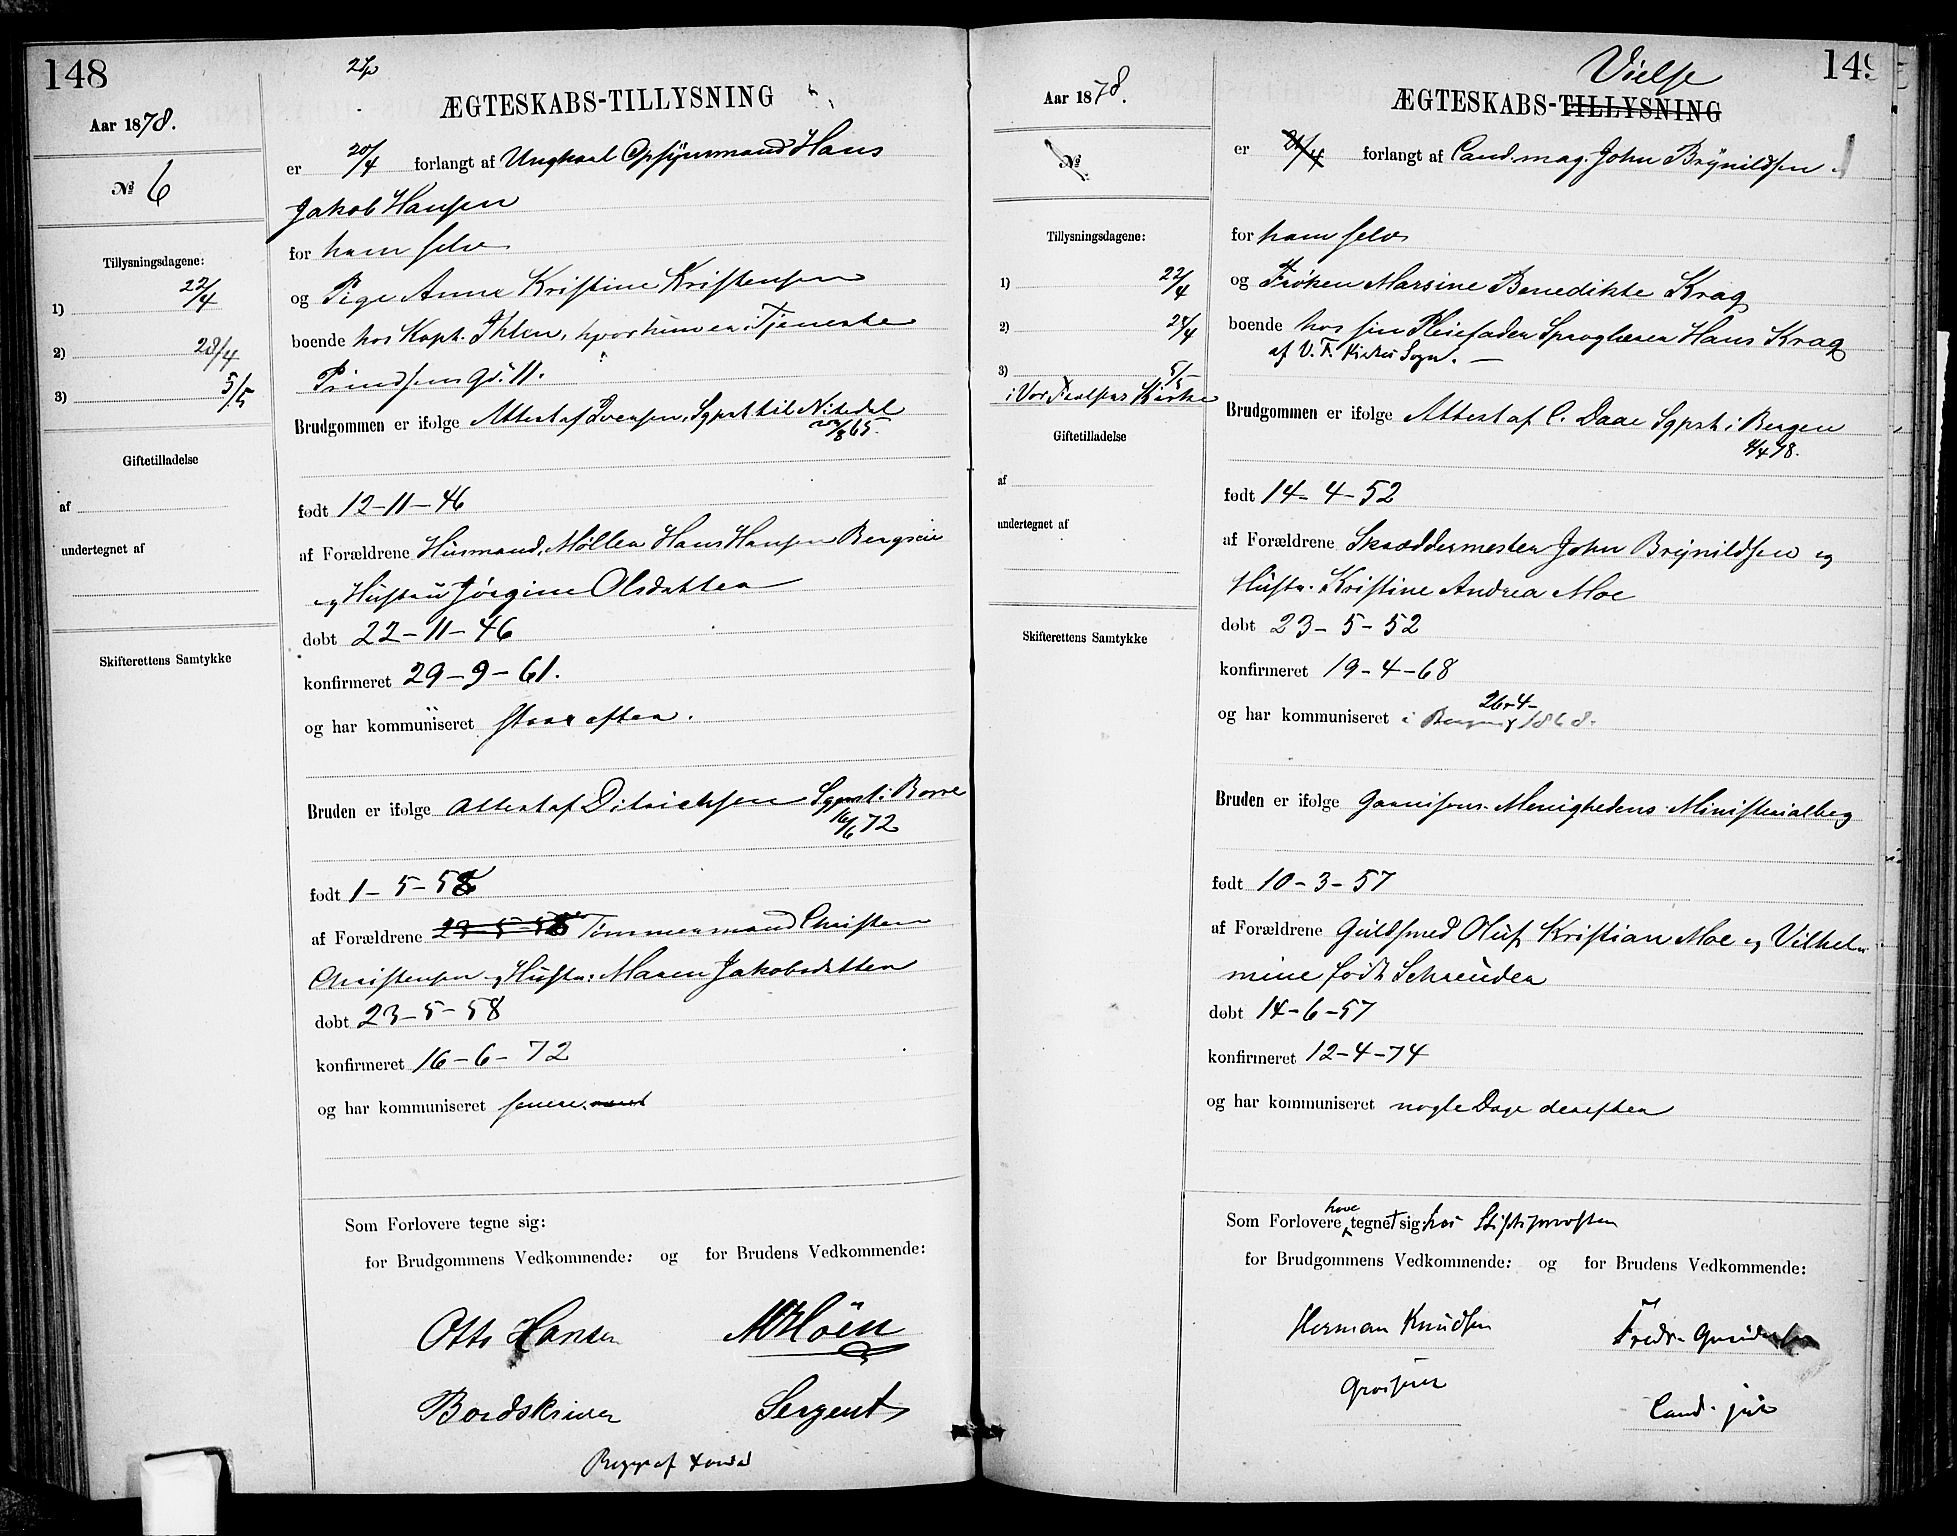 148
27/10
ÆGTESKABS-TILLYSNING
Aar 1878.
er 20/4 forlangt af Ungkarl Opsynsmand Hans
№ 6
Jakob Hansen
Tillysningsdagene:
for ham selv
1) 22/4
og Pige Anne Kristine Kristensen
2) 28/4
boende hos Kapt. Ihlen, hvor hun er i Tjeneste
3) 5/5
Prindsensgd. 11.
Brudgommen er ifølge Attest af Ivensen, Sgprst til Nitedal
/8 65.
Giftetilladelse
af
født 12-11-46
undertegnet af
af Forældrene Husmand, Møller Hans Hansen Bergseie
og Hustru Jørgine Olsdatter
døbt 22-11-46
Skifterettens Samtykke
konfirmeret 29-9-61.
og har kommuniseret straxefter.
Bruden er ifølge Attest af Ditrichsen Sgprst i Borre
16/6 72
født 1-5-58
af Forældrene 23-5-58 Tømmermand Christen
Christensen og Hustru Maren Jakobsdatter
døbt 23-5-58
konfirmeret 16-6-72
og har kommuniseret senere
Som Forlovere tegne sig:
for Brudgommens Vedkommende: og for Brudens Vedkommende:
Otto Hansen
Høen
Bordskriver
Sergent
Begge af
149
Vielse
ÆGTESKABS-TILLYSNING
Aar 1878.
er 21/4 forlangt af Cand. mag. John Brynildsen
№
Tillysningsdagene:
for ham selv
1) 22/4
og Frøken Marsine Benedikte Krag
2) 28/4
boende hos sin Pleiefader Sproglærer Hans Krag
af V. F. Kirkes Sogn.
3) 5/5
i Vor Frelsers Kirke
Brudgommen er ifølge Attest af C. Daae Sgprst i Bergen
/4 78.
Giftetilladelse
af
født 14-4-52
undertegnet af
af Forældrene Skræddermester John Brynildsen og
Hustr. Kristine Andrea Moe
døbt 23-5-52
Skifterettens Samtykke
konfirmeret 19-4-68
26-4-
og har kommuniseret i Bergen 1868.
Bruden er ifølge Garnisons-Menighedens Ministerialbog
født 10-3-57
af Forældrene Guldsmed Oluf Kristian Moe og Vilhel-
mine født Schreuder
døbt 14-6-57
konfirmeret 12-4-74
og har kommuniseret nogle Dage derefter
Som Forlovere have tegnet sig hos Stiftsprovsten
for Brudgommens Vedkommende: og for Brudens Vedkommende:
Herman Knudsen
Fredr.
Grosserer
Cand. jur